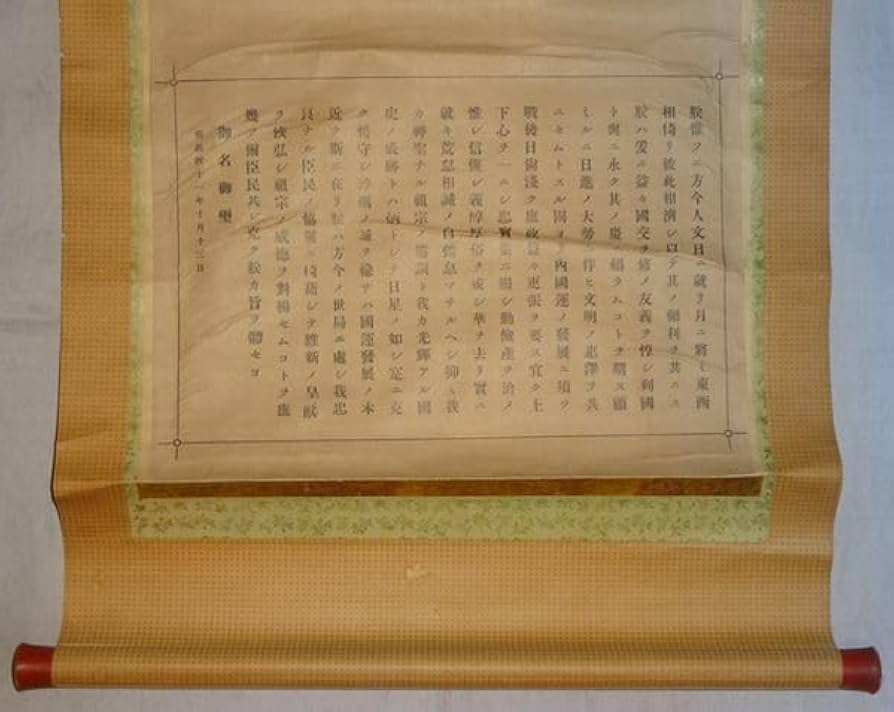 朕惟フニ方今人文日ニ就リ月ニ將ミ東西
相倚リ彼此相濟シ以テ其ノ福利ヲ共ニス
朕ハ爰ニ益々國交ヲ修メ友義ヲ惇シ列國
ト與ニ永ク其ノ慶ニ賴ラムコトヲ期ス顧
ミルニ日進ノ大勢ニ伴ヒ文明ノ惠澤ヲ共
ニセムトスル固ヨリ內國運ノ發展ニ須ツ
戰後日尙淺ク庶政益々更張ヲ要ス宜ク上
下心ヲ一ニシ忠實業ニ服シ勤儉產ヲ治メ
惟レ信惟レ義醇厚俗ヲ成シ華ヲ去リ實ニ
就キ荒怠相誡メ自彊息マサルヘシ抑々我
カ神聖ナル祖宗ノ遺訓ト我カ光輝アル國
史ノ成跡トハ炳トシテ日星ノ如シ寔ニ克
ク恪守シ淬礪ノ誠ヲ輸サハ國運發展ノ本
近ク斯ニ在リ朕ハ方今ノ世局ニ處シ我忠
良ナル臣民ノ協翼ニ倚藉シテ維新ノ皇猷
ヲ恢弘シ祖宗ノ威德ヲ對揚セムコトヲ庶
幾フ爾臣民其レ克ク朕カ旨ヲ體セヨ
御名御璽
明治四十一年十月十三日